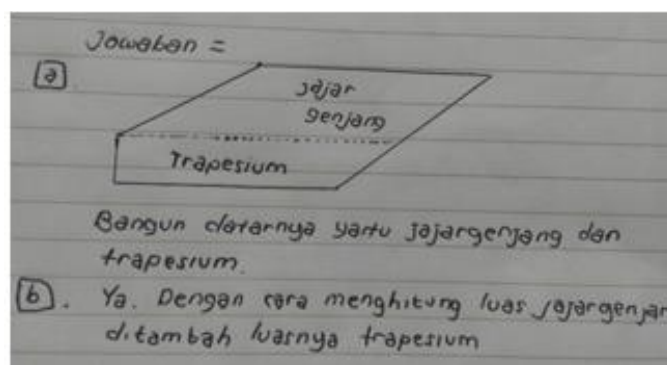 Jawaban =
a
Jajar
genjang
Trapesium
Bangun datarnya yaitu jajargenjang dan
trapesium.
b. Ya. Dengan cara menghitung luas jajargenjan
ditambah luasnya trapesium